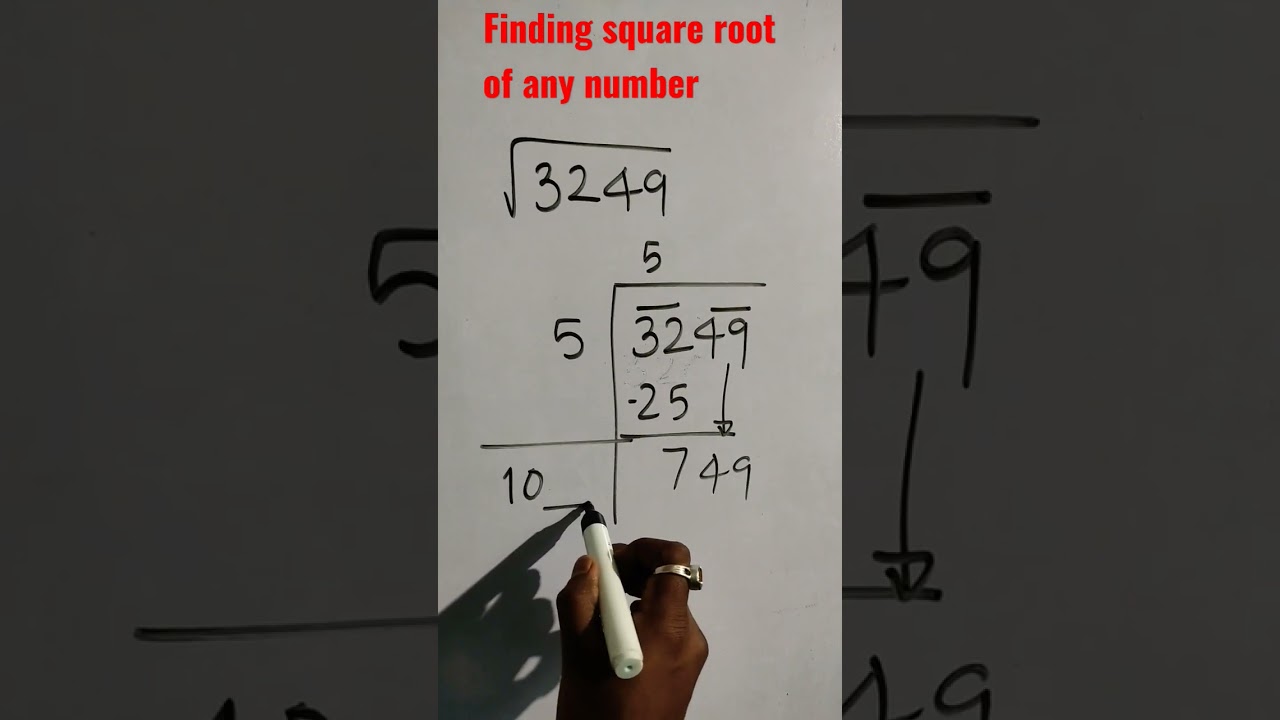 Finding square root
of any number
√3249
5
5 3249
-25
10_ 749